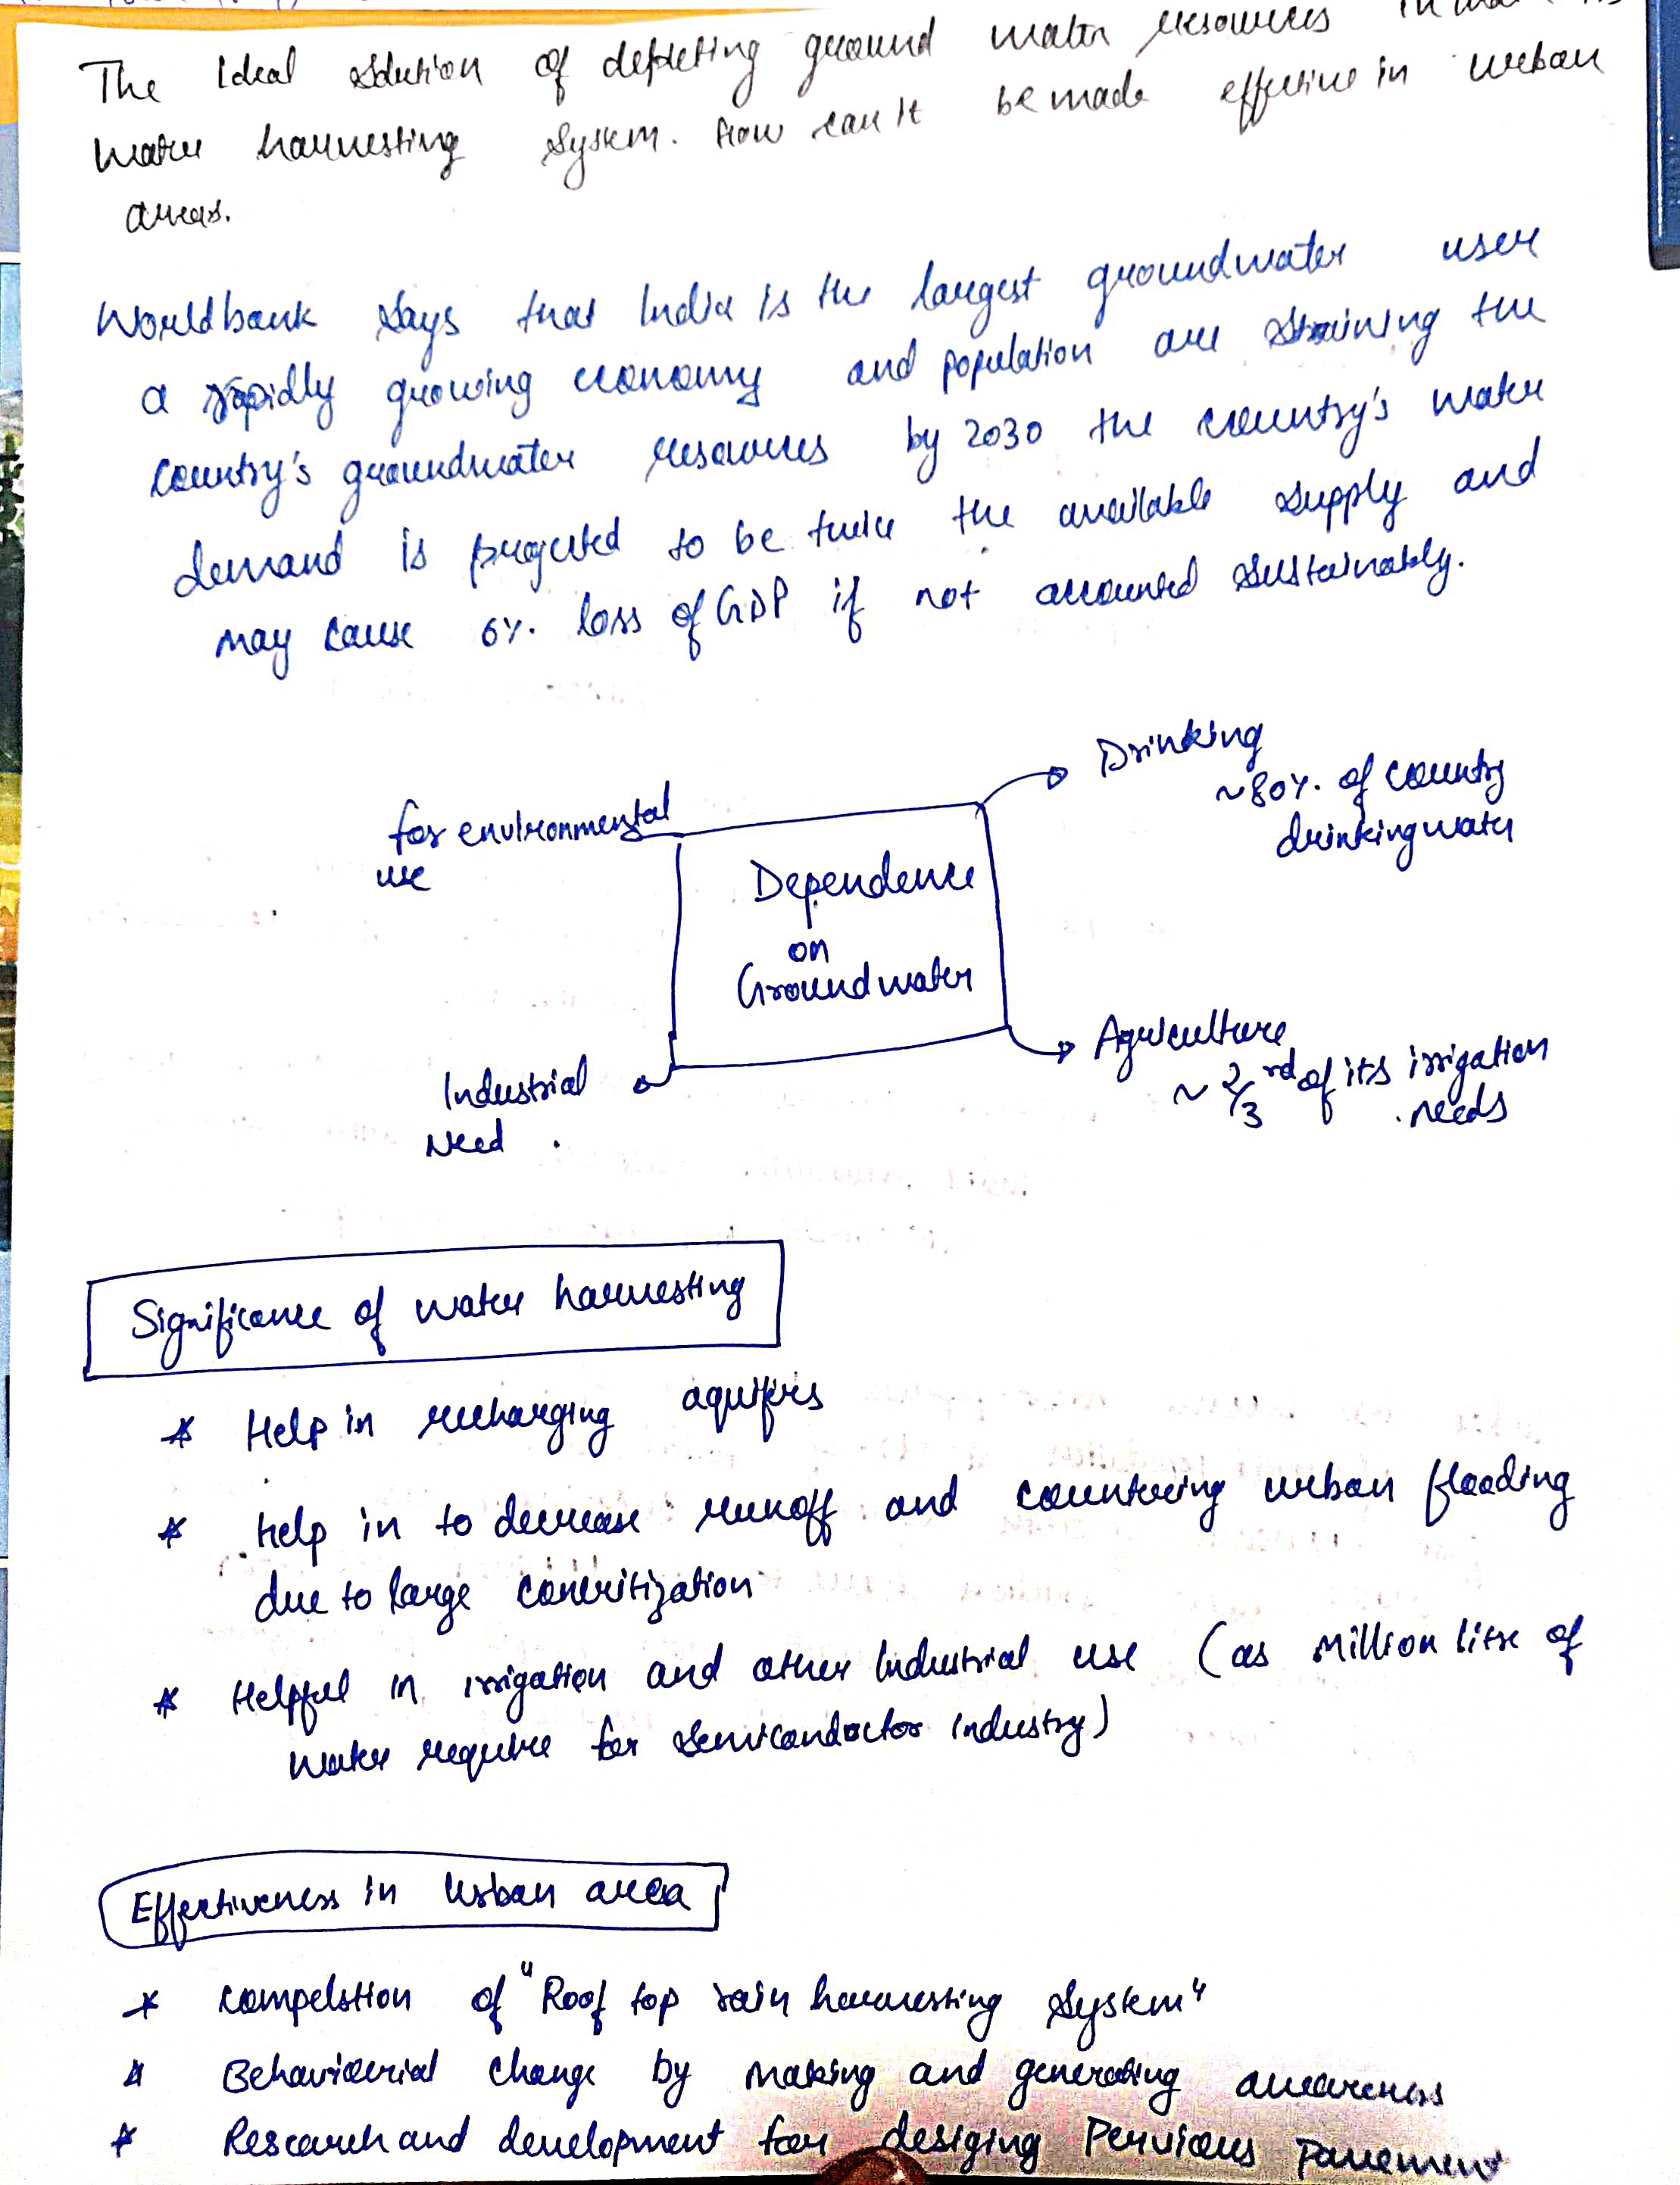 The Ideal solution of depleting ground water resources in
water harvesting system. How can it be made effective in urban
areas.
Worldbank says that India is the largest groundwater user
a rapidly growing economy and population are straining the
country's groundwater resources by 2030 the country's water
demand is projected to be twice the available supply and
may cause 6%. loss of GDP if not accounted sustainably.
Drinking
~80%. of country
drinking water
for environmental
use
Dependence
on
Groundwater
Agriculture
~ 2/3 rd of its irrigation
needs
Industrial
Need
Significance of water harvesting
* Help in recharging aquifers
* Help in to decrease runoff and countering urban flooding
due to large concritization
* Helpful in irrigation and other Industrial use (as Million litre of
water require for semiconductor industry)
Effectiveness in Urban area
* Compelstion of "Roof top rain harvesting system"
* Behaviourial change by making and generating awareness
* Research and development for desiging Pervious Pavement